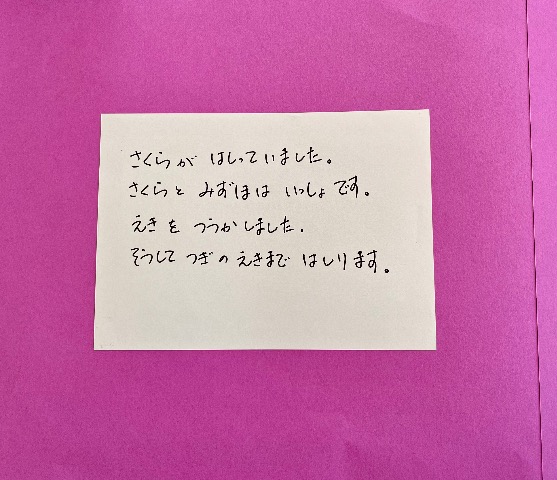 さくらが はしっていました。
さくらと みずほは いっしょです。
えきを つうかしました.
そうして つぎの えきまで はしります。